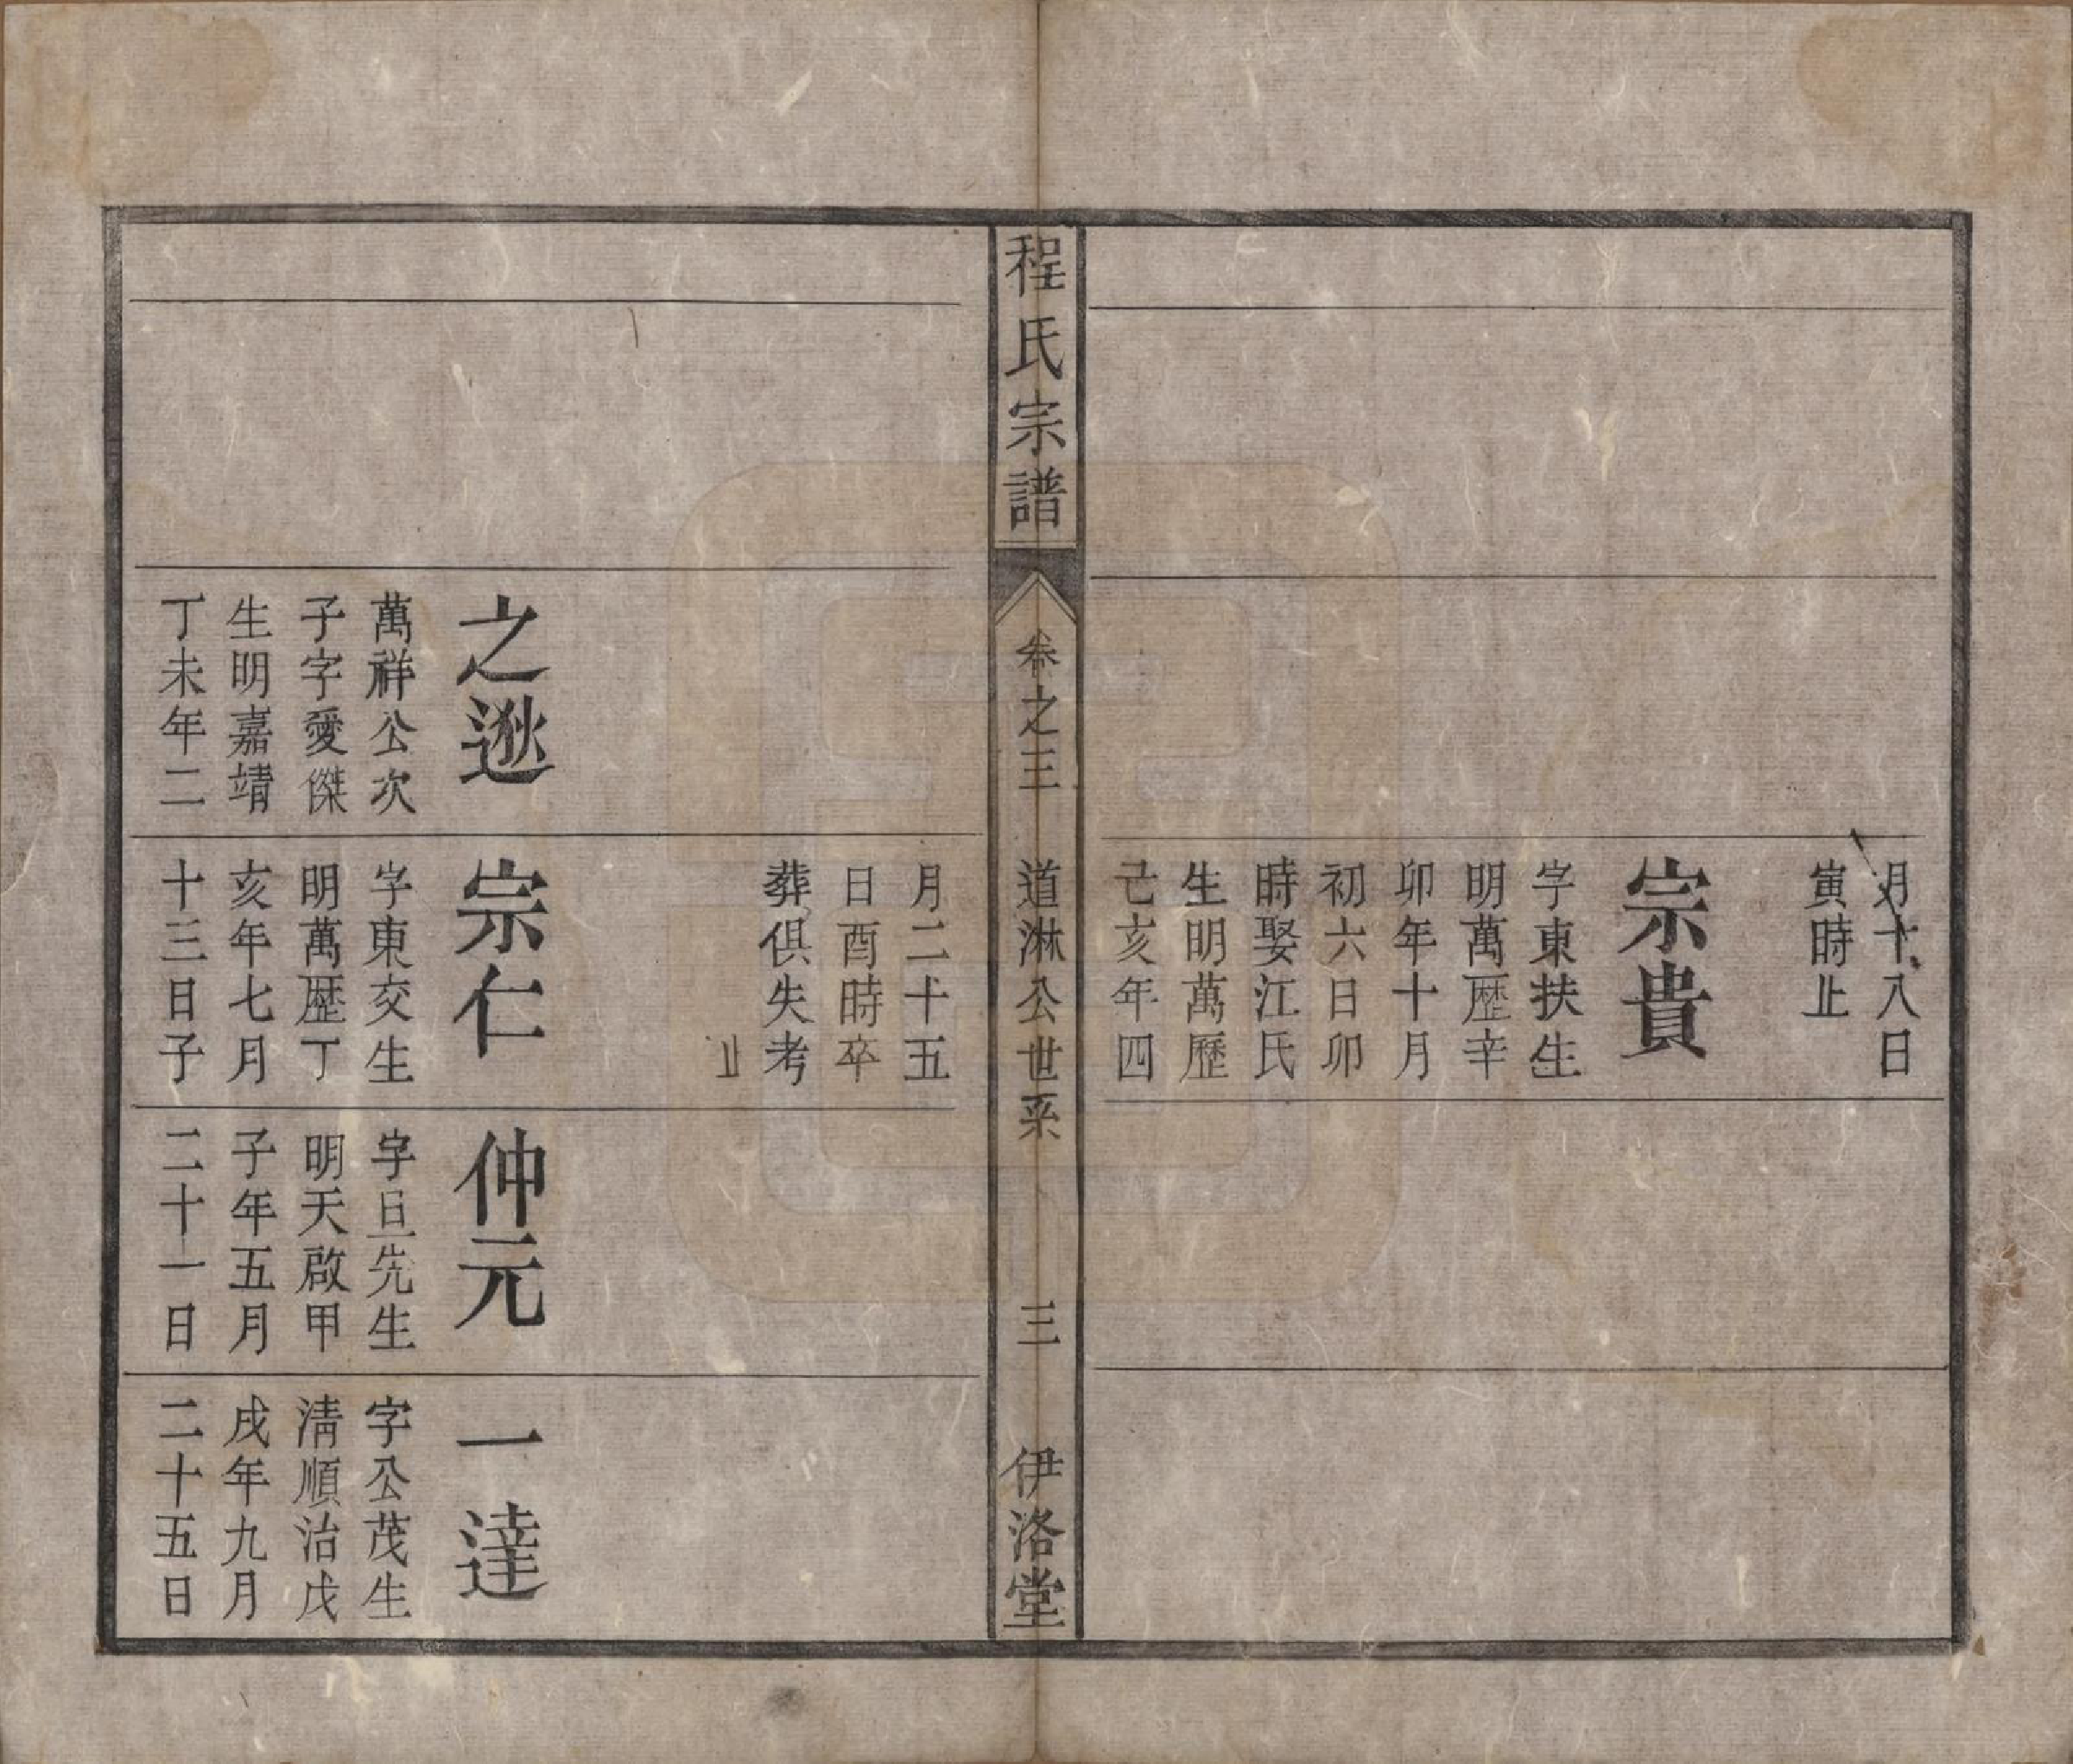 月十八日
寅時止
宗貴
字東扶生
明萬歴辛
卯年十月
初六日卯
時娶江氏
生明萬歷
己亥年四
程氏宗譜
卷之三
道淋公世系
三
伊洛堂
月二十五
日酉時卒
葬俱失考
止
之逖
萬祥公次
子字愛傑
生明嘉靖
丁未年二
宗仁
字東交生
明萬歴丁
亥年七月
十三日子
仲元
字旦先生
明天啟甲
子年五月
二十一日
一達
字公茂生
清順治戊
戌年九月
二十五日